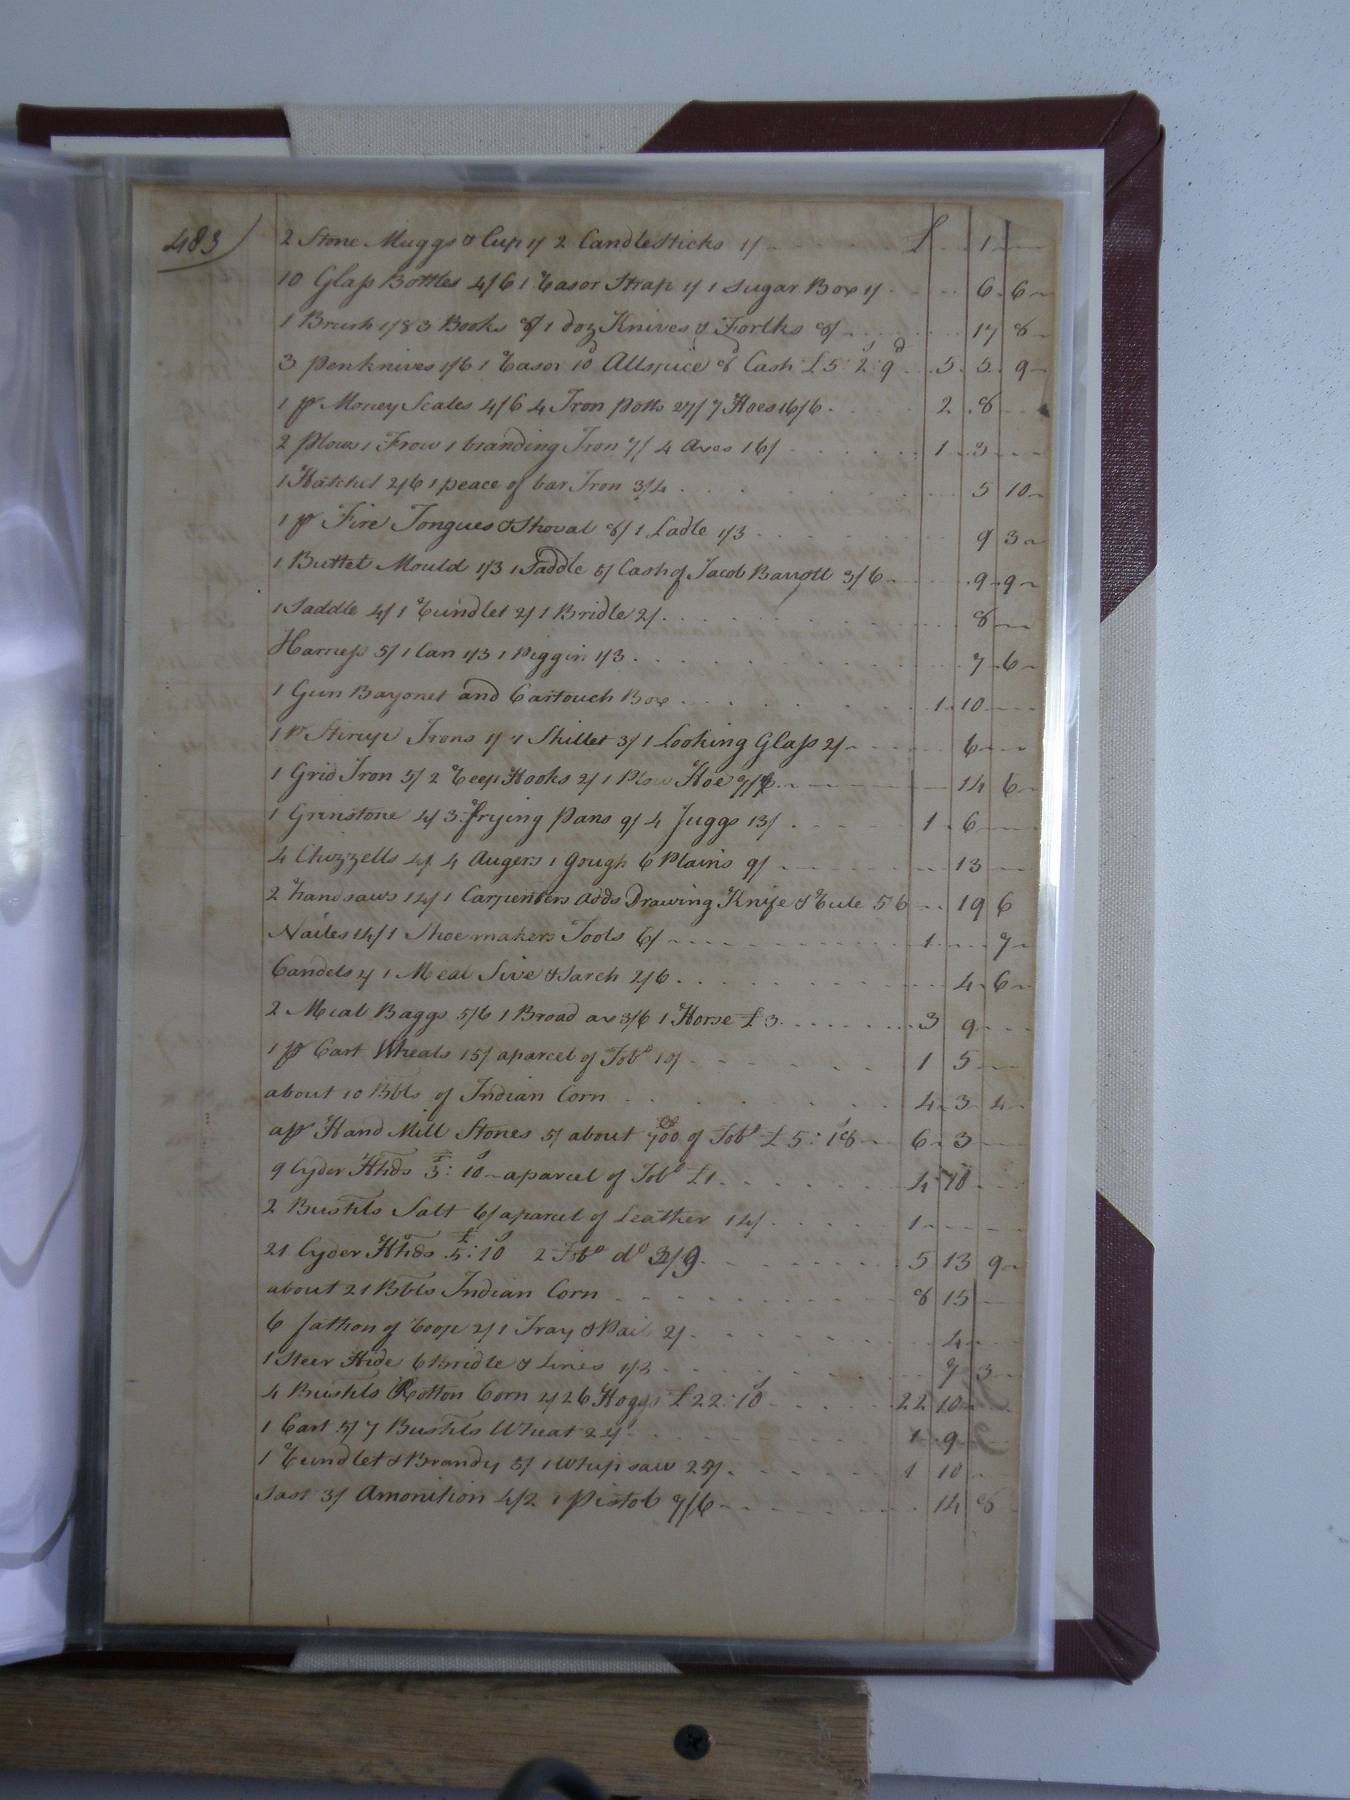 483
2 Stone Muggs & Cup 1/ 2 Candlesticks 1/ £ 1
10 Glass Bottles 4/6 1 Rasor Strap 1/ 1 Sugar Box 1/ 6 6
1 Brush 1/8 3 Books 8/ 1 doz Knives & Forlks 8/ 17 8
3 penknives 1/6 1 Rasor 10d Allspice 8d Cash £5: 2s: 9d 5 5 9
1 pr Money Scales 4/6 4 Iron Potts 27/ 7 Hoes 16/6 2 8
2 Plows 1 Frow 1 branding Iron 7/ 4 Axes 16/ 1 3
1 Hatchet 2/6 1 peace of bar Iron 3/4 5 10
1 pr Fire Tongues & Shoval 8/ 1 Ladle 1/3 9 3
1 Buttet Mould 1/3 1 Saddle 5/ Cash of Jacob Barrott 3/6 9 9
1 Saddle 4/ 1 Rundlet 2/ 1 Bridle 2/ 8
Harness 5/ 1 Can 1/3 1 Piggin 1/3 7 6
1 Gun Bayonet and Cartouch Box 1 10
1 pr Stirup Irons 1/ 1 Skillet 3/ 1 Looking Glass 2/ 6
1 Grid Iron 5/ 2 Reep Hooks 2/ 1 Plow Hoe 7/6 14 6
1 Grinstone 4/ 3 frying Pans 9/ 4 Juggs 13/ 1 6
4 Chizzells 4/ 4 Augers 1 Gough 6 Plains 9/ 13
2 handsaws 14/ 1 Carpenters Adds Drawing Knife & Rule 5 6 19 6
Nailes 14/1 Shoemakers Tools 6/ 1 7
Candels 2/ 1 Meal Sive & Sarch 2/6 4 6
2 Meal Baggs 5/6 1 Broad ax 3/6 1 Horse £3 3 9
1 pr Cart Wheals 15/ a parcel of Tobo 10/ 1 5
about 10 Bbls of Indian Corn 4 3 4
a pr Hand Mill Stones 5/ about 700 of Tobo £5: 18s 6 3
9 Cyder Hhds £3: 10s a parcel of Tobo £1 4 10
2 Bushls Salt 6/ a parcel of Leather 14/ 1
21 Cyder Hhds £5: 10s 2 Tobo do 3/9 5 13 9
about 21 Bbls Indian Corn 8 15
6 fathon of Roop 2/ 1 Tray & Pail 2/ 4
1 Steer Hide 6 Bridle & Lines 1/3 7 3
4 Bushls Rotton Corn 4/ 26 Hoggs £22: 10s 22 10
1 Cart 5/ 7 Bushls Wheat 24/ 1 9
1 Rundlet & Brandy 5/ 1 whip saw 25/ 1 10
3/ Amonition 4/2 1 Pistol 7/6 14 8